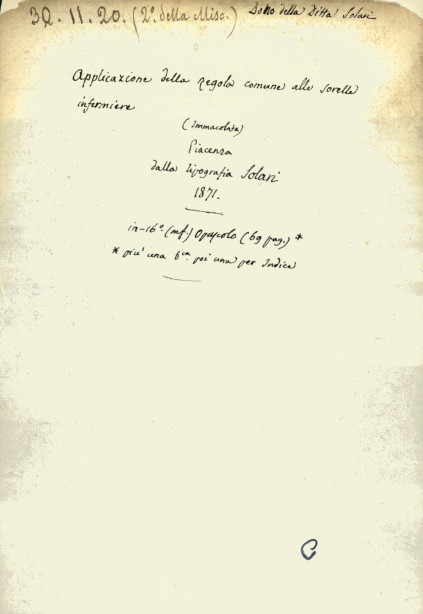 3Q. 11. 20. (2º. della Misc.) Dono della Ditta Solari
Applicazione della regola comune alle sorelle
infermiere
(Immacolata)
Piacenza
dalla Tipografia Solari
1871.
in-16º. (mf.) Opuscolo (69 pag.) *
* più una bca. poi una per Indice
C